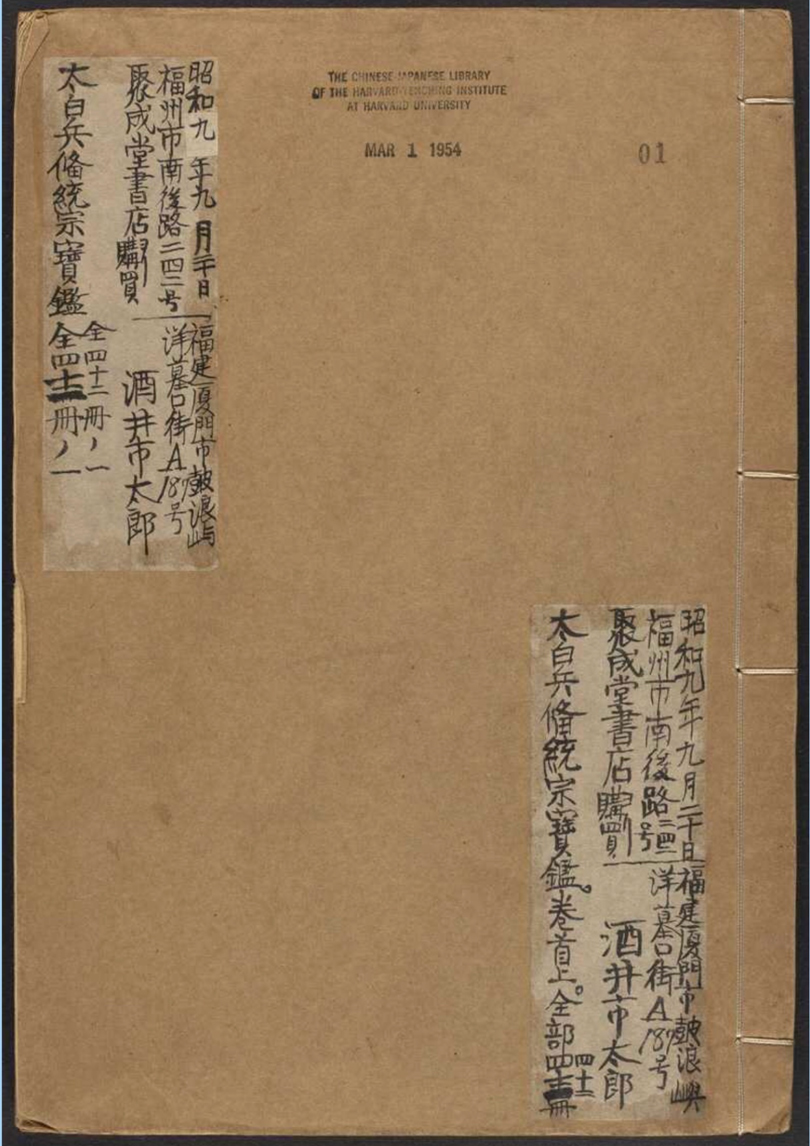 THE CHINESE-JAPANESE LIBRARY
OF THE HARVARD-YENCHING INSTITUTE
AT HARVARD UNIVERSITY
MAR 1 1954
01
昭和九年九月二十日
福州市南後路二四二号
聚成堂書店購買
福建厦門市鼓浪屿
洋墓口街A187号
酒井市太郎
太白兵備統宗寶鑑
全四十二冊ノ一
全四冊ノ一
昭和九年九月二十日
福州市南後路二四二号
聚成堂書店購買
福建厦門市鼓浪嶼
洋墓口街A187号
酒井市太郎
太白兵備統宗寶鑑。卷首上。全部四十二冊